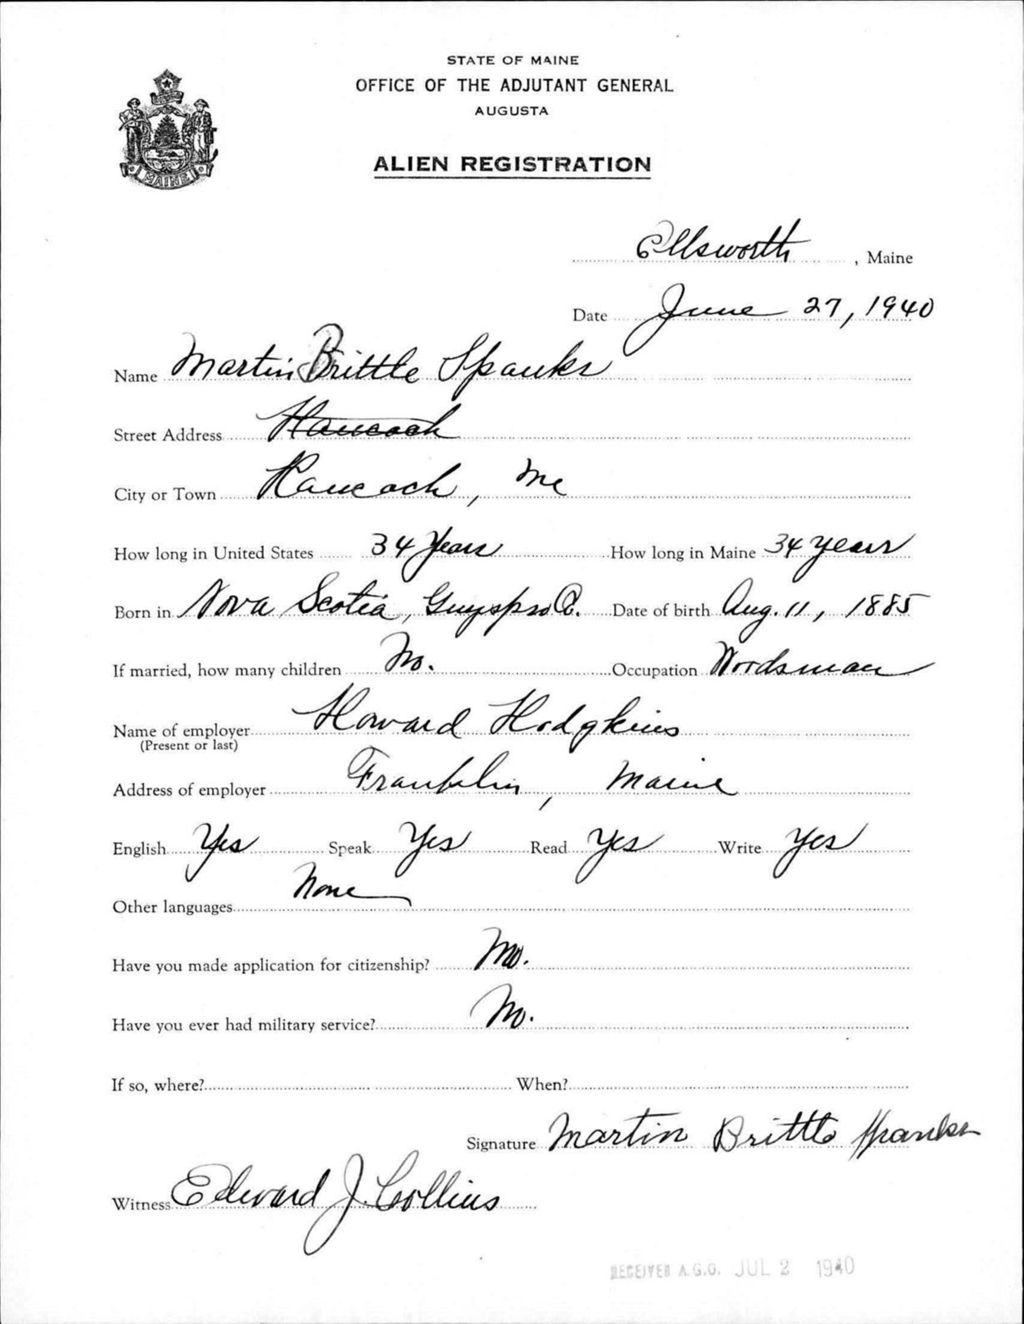 STATE OF MAINE
OFFICE OF THE ADJUTANT GENERAL
AUGUSTA
ALIEN REGISTRATION
MAINE
Ellsworth, Maine
Date June 27, 1940
Name Martin Brittle Spanks
Street Address Hancock
City or Town Hancock, Me
How long in United States 34 Years How long in Maine 34 years
Born in Nova Scotia, Co. Date of birth Aug. 11, 1885
If married, how many children No. Occupation Woodsman
Name of employer Howard Hodgkins
(Present or last)
Address of employer Franklin, Maine
English Yes Speak Yes Read Yes Write Yes
Other languages None
Have you made application for citizenship? No.
Have you ever had military service? No.
If so, where? When?
Signature Martin Brittle Spanks
Witness Edward J. Collins
RECEIVED A.G.O. JUL 2 1940